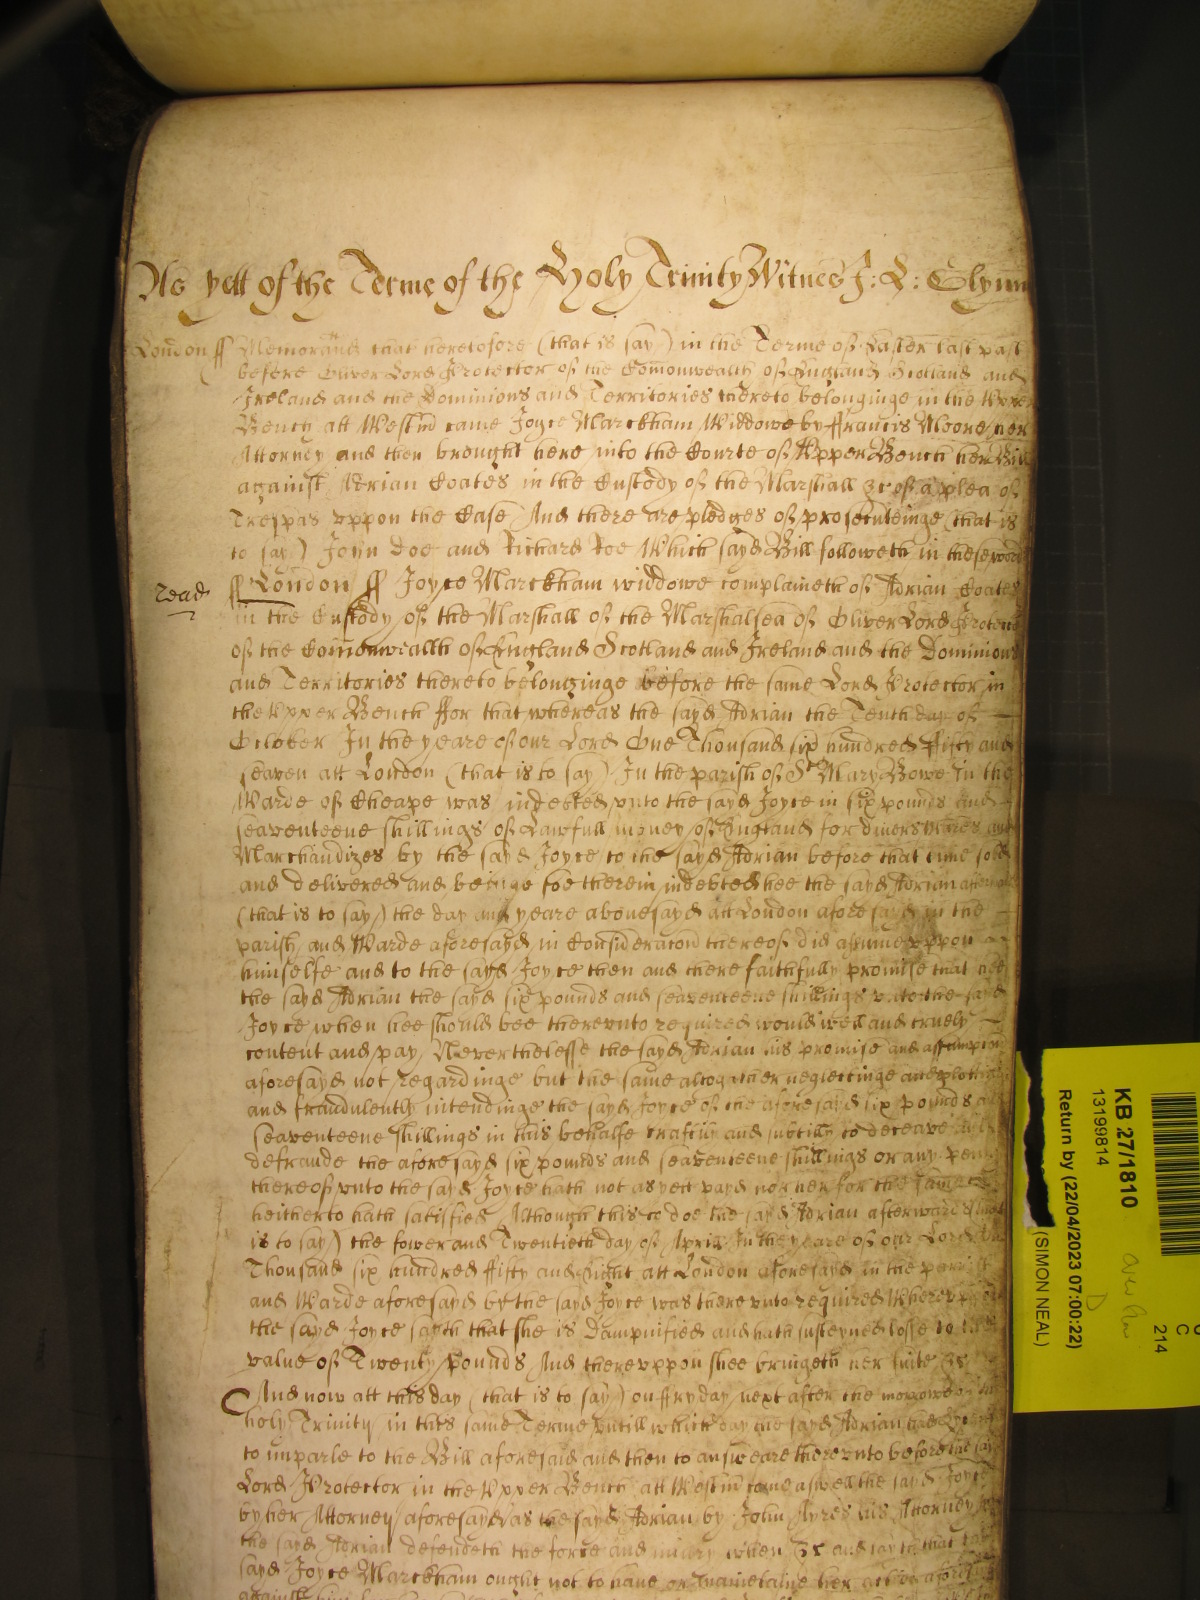 As yett of the Terme of the Holy Trinity Witnes J: Q: Glynn
London ss Memorand that heretofore (that is say) in the Terme of Easter last past
before Oliver Lord Protector of the Comonwealth of England Scotland and
Ireland and the Dominions and Territories thereto belonginge in the Upper
Bench att Westm came Joyce Marckham Widdowe by Francis Moore her
Attorney and then brought here into the Courte of Upper Bench her Bill
against Adrian Coates in the Custody of the Marshall &c of a plea of
Trespas uppon the Case And there are pledges of prosecuteinge (that is
to say) John Doe and Richard Roe Which sayd Bill followeth in these words
read
ss London ss Joyce Marckham widdowe complaineth of Adrian Coates
in the Custody of the Marshall of the Marshalsea of Oliver Lord Protector
of the Comonwealth of England Scotland and Ireland and the Dominions
and Territories thereto belonginge before the same Lord Protector in
the Upper Bench ffor that whereas the sayd Adrian the Tenth day of
October In the yeare of our Lord One Thousand six hundred ffifty and
seaven att London (that is to say) In the parish of St Mary Bowe in the
Warde of Cheape was indebted unto the sayd Joyce in six pounds and
seaventeene shillings of Lawfull money of England for divers wares and
Marchandizes by the sayd Joyce to the sayd Adrian before that time sold
and delivered and beinge soe therein indebted hee the sayd Adrian afterwards
(that is to say) the day and yeare abovesayd att London aforesayd in the
parish and Warde aforesayd in Consideracon thereof did assume uppon
himselfe and to the sayd Joyce then and there faithfully promise that hee
the sayd Adrian the sayd six pounds and seaventeene shillings unto the sayd
Joyce when hee should bee thereunto required would well and truely
content and pay Neverthelesse the sayd Adrian his promise and assumpcon
aforesayd not regardinge but the same altogather neglectinge and plotting
and fraudulently intendinge the sayd Joyce of the aforesayd six pounds and
seaventeene shillings in this behalfe craftily and subtilly to deceave and
defraude the aforesayd six pounds and seaventeene shillings or any penny
thereof unto the sayd Joyce hath not as yett payd nor her for the same
heitherto hath satisfied Although this to doe the sayd Adrian afterwards that
is to say) the fower and Twentieth day of Aprill In the yeare of our Lord One
Thousand six hundred ffifty and Eight att London aforesayd in the parish
and Warde aforesayd by the sayd Joyce was thereunto required Whereuppon
the sayd Joyce sayth that she is Dampnified and hath susteyned losse to the
value of Twenty pounds And thereuppon shee bringeth her suite &c
And now att this day (that is to say) on ffryday next after the morrowe of the
holy Trinity in this same Terme untill which day the sayd Adrian had lycence
to imparle to the Bill aforesaid and then to answeare thereunto before the said
Lord Protector in the Upper Bench att Westm came aswell the sayd Joyce
by her Attorney aforesayd as the sayd Adrian by John Ayres his Attorney And
the sayd Adrian defendeth the force and iniury when &c and sayth that the
sayd Joyce Marckham ought not to have or mainetaine her accon aforesayd
against him
KB 27/1810
13199814
Return by (22/04/2023 07:00:22)
(SIMON NEAL)
214
C
D